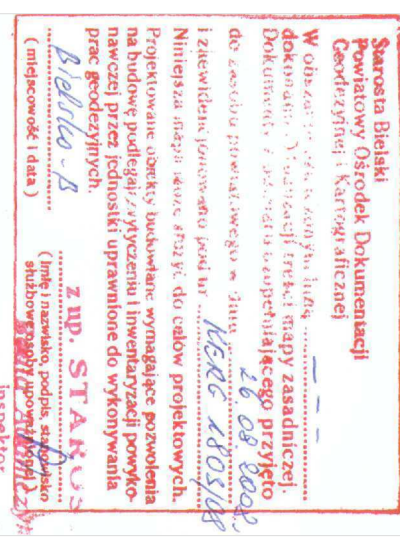 Starosta Bielski
Powiatowy Ośrodek Dokumentacji
Geodezyjnej i Kartograficznej
W obszarze
dokonano aktualizacji treści mapy zasadniczej.
Dokumenty z pomiaru uzupełniającego przyjęto
do zasobu powiatowego w dniu 26 08 2008
i zaewidencjonowano pod nr KERG 1803/08
Niniejsza mapa może służyć do celów projektowych.
Projektowane obiekty budowlane wymagające pozwolenia
na budowę podlegają wytyczeniu i inwentaryzacji powyko-
nawczej przez jednostki uprawnione do wykonywania
prac geodezyjnych.
Bielsko-B
( miejscowość i data )
z up. STAROS
( imię i nazwisko, podpis, stanowisko
służbowe osoby upoważnionej )
inspektor